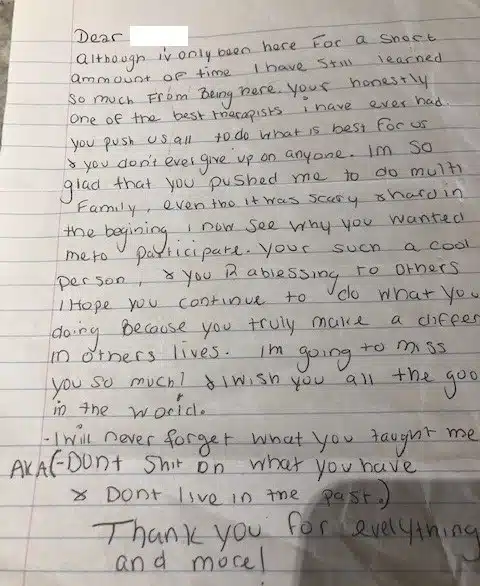 Dear
Although iv only been here For a short
ammount of time I have still learned
so much From Being here. Your honestly
one of the best therapists i have ever had.
you push us all to do what is best For us
& you don't ever give up on anyone. Im so
glad that you pushed me to do multi
Family, even tho it was scary & hard in
the begining i now see why you wanted
me to participate. Your such a cool
person, & you R a blessing to others
I Hope you continue to do what you
doing Because you truly make a differ
in others lives. Im going to miss
you so much! & I wish you all the goo
in the world.
-I will never forget what you taught me
AKA(-Dont Shit on what you have
& Dont live in the past.)
Thank you for everything
and more!